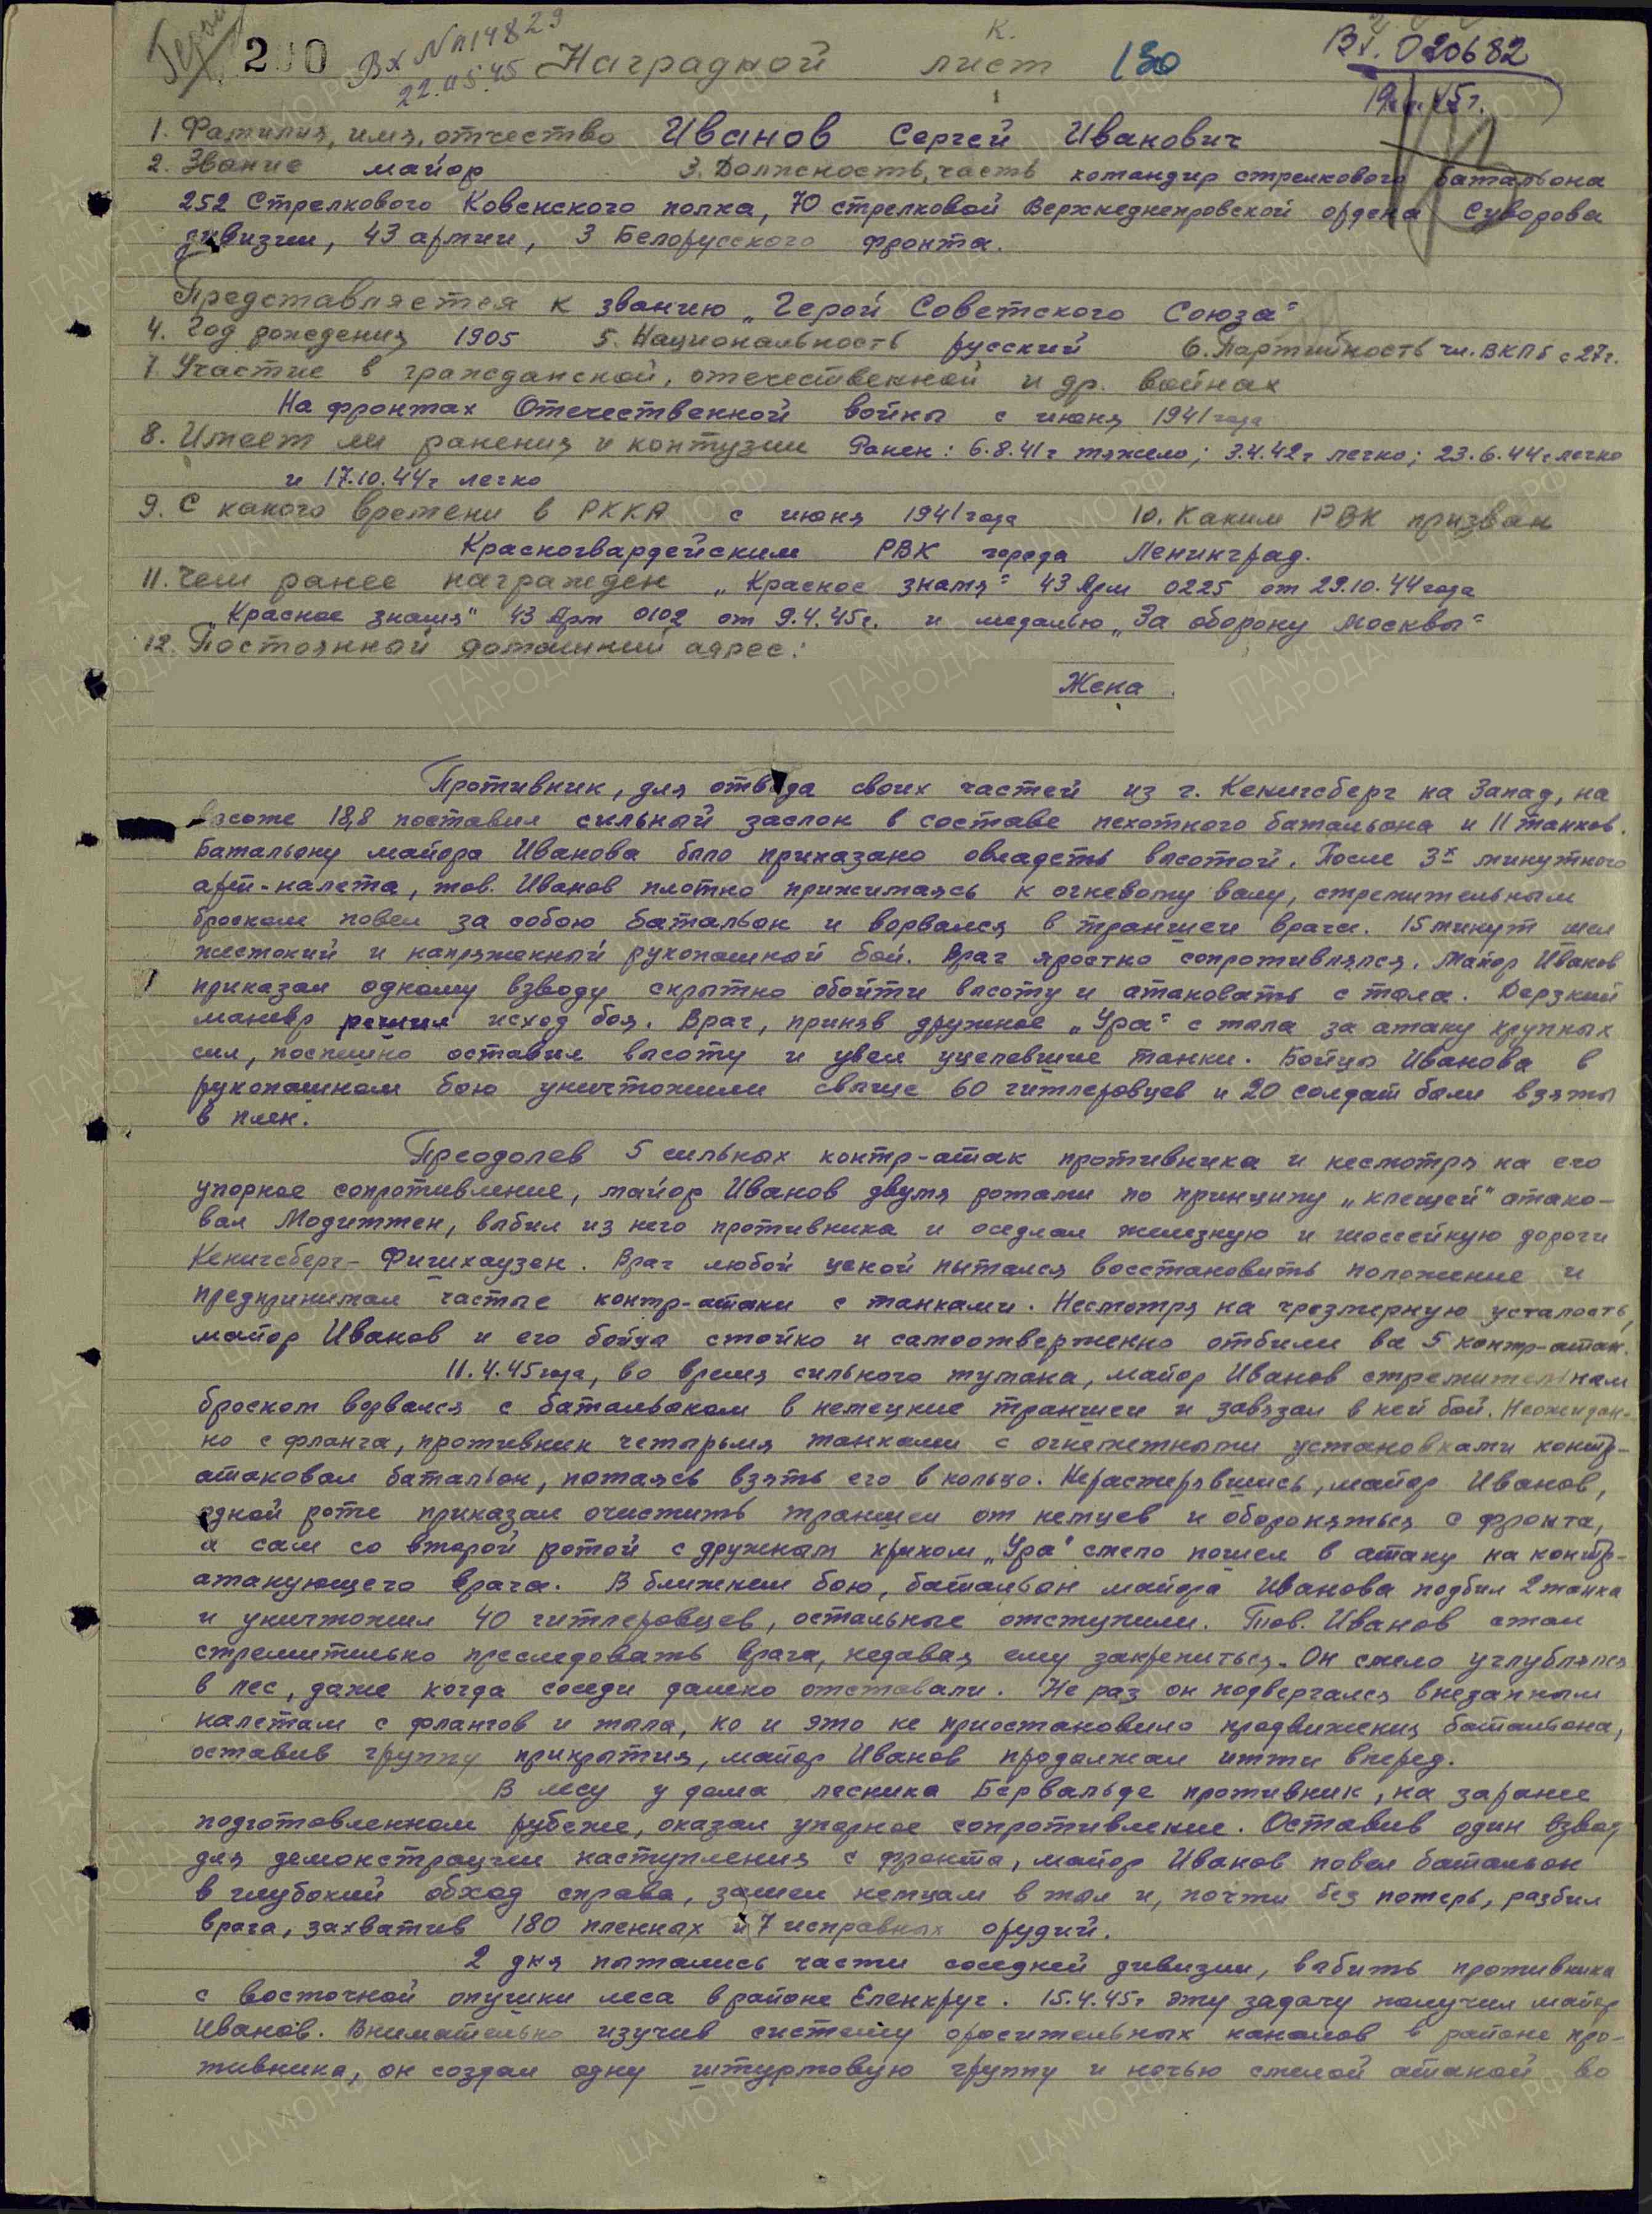 Герой
200 Вх №п14829 Наградной лист к. 130 Вх. 020682
22.05.45
1. Фамилия, имя, отчество Иванов Сергей Иванович
2. Звание майор 3. Должность, часть командир стрелкового батальона
252 Стрелкового Ковенского полка, 70 стрелковой Верхнеднепровской ордена Суворова
дивизии, 43 армии, 3 Белорусского фронта.
Представляется к званию „Герой Советского Союза"
4. Год рождения 1905 5. Национальность русский 6. Партийность чл. ВКПб с 27г.
7. Участие в гражданской, отечественной и др. войнах
На фронтах Отечественной войны с июня 1941 года
8. Имеет ли ранения и контузии Ранен: 6.8.41г тяжело; 3.4.42г легко; 23.6.44г легко
и 17.10.44г легко
9. С какого времени в РККА с июня 1941 года 10. Каким РВК призван
Красногвардейским РВК города Ленинград.
11. Чем ранее награжден „Красное знамя" 43 Арм 0225 от 29.10.44 года
„Красное знамя" 43 Арм 0102 от 9.4.45г. и медалью „За оборону Москвы"
12. Постоянный домашний адрес:
Жена
Противник, для отвода своих частей из г. Кенигсберг на Запад, на
высоте 18,8 поставил сильный заслон в составе пехотного батальона и 11 танков.
Батальону майора Иванова было приказано овладеть высотой. После 3х минутного
арт-налета, тов. Иванов плотно прижимаясь к огневому валу, стремительным
броском повел за собою батальон и ворвался в траншеи врага. 15 минут шел
жестокий и напряженный рукопашный бой. Враг яростно сопротивлялся. Майор Иванов
приказал одному взводу скрытно обойти высоту и атаковать с тыла. Дерзкий
маневр решил исход боя. Враг, приняв дружное „Ура" с тыла за атаку крупных
сил, поспешно оставил высоту и увел уцелевшие танки. Бойцы Иванова в
рукопашном бою уничтожили свыше 60 гитлеровцев и 20 солдат были взяты
в плен.
Преодолев 5 сильных контр-атак противника и несмотря на его
упорное сопротивление, майор Иванов двумя ротами по принципу „клещей" атако-
вал Модиттен, выбил из него противника и оседлал железную и шоссейную дороги
Кенигсберг - Фишхаузен. Враг любой ценой пытался восстановить положение и
предпринимал частые контр-атаки с танками. Несмотря на чрезмерную усталость,
майор Иванов и его бойцы стойко и самоотверженно отбили все 5 контр-атак.
11.4.45 года, во время сильного тумана, майор Иванов стремительным
броском ворвался с батальоном в немецкие траншеи и завязал в ней бой. Неожидан-
но с фланга, противник четырьмя танками с огнеметными установками контр-
атаковал батальон, пытаясь взять его в кольцо. Нерастерявшись, майор Иванов,
одной роте приказал очистить траншеи от немцев и обороняться с фронта,
а сам со второй ротой с дружным криком „Ура" смело пошел в атаку на контр-
атакующего врага. В ближнем бою, батальон майора Иванова подбил 2 танка
и уничтожил 40 гитлеровцев, остальные отступили. Тов. Иванов стал
стремительно преследовать врага, недавая ему закрепиться. Он смело углублялся
в лес, даже когда соседи далеко отставали. Не раз он подвергался внезапным
налетам с флангов и тыла, но и это не приостановило продвижения батальона,
оставив группу прикрытия, майор Иванов продолжал итти вперед.
В лесу у дома лесника Бервальде противник, на заранее
подготовленном рубеже, оказал упорное сопротивление. Оставив один взвод
для демонстрации наступления с фронта, майор Иванов повел батальон
в глубокий обход справа, зашел немцам в тыл и, почти без потерь, разбил
врага, захватив 180 пленных и 7 исправных орудий.
2 дня пытались части соседней дивизии, выбить противника
с восточной опушки леса в районе Еленкруг. 15.4.45г эту задачу получил майор
Иванов. Внимательно изучив систему оросительных каналов в районе про-
тивника, он создал одну штурмовую группу и ночью смелой атакой во